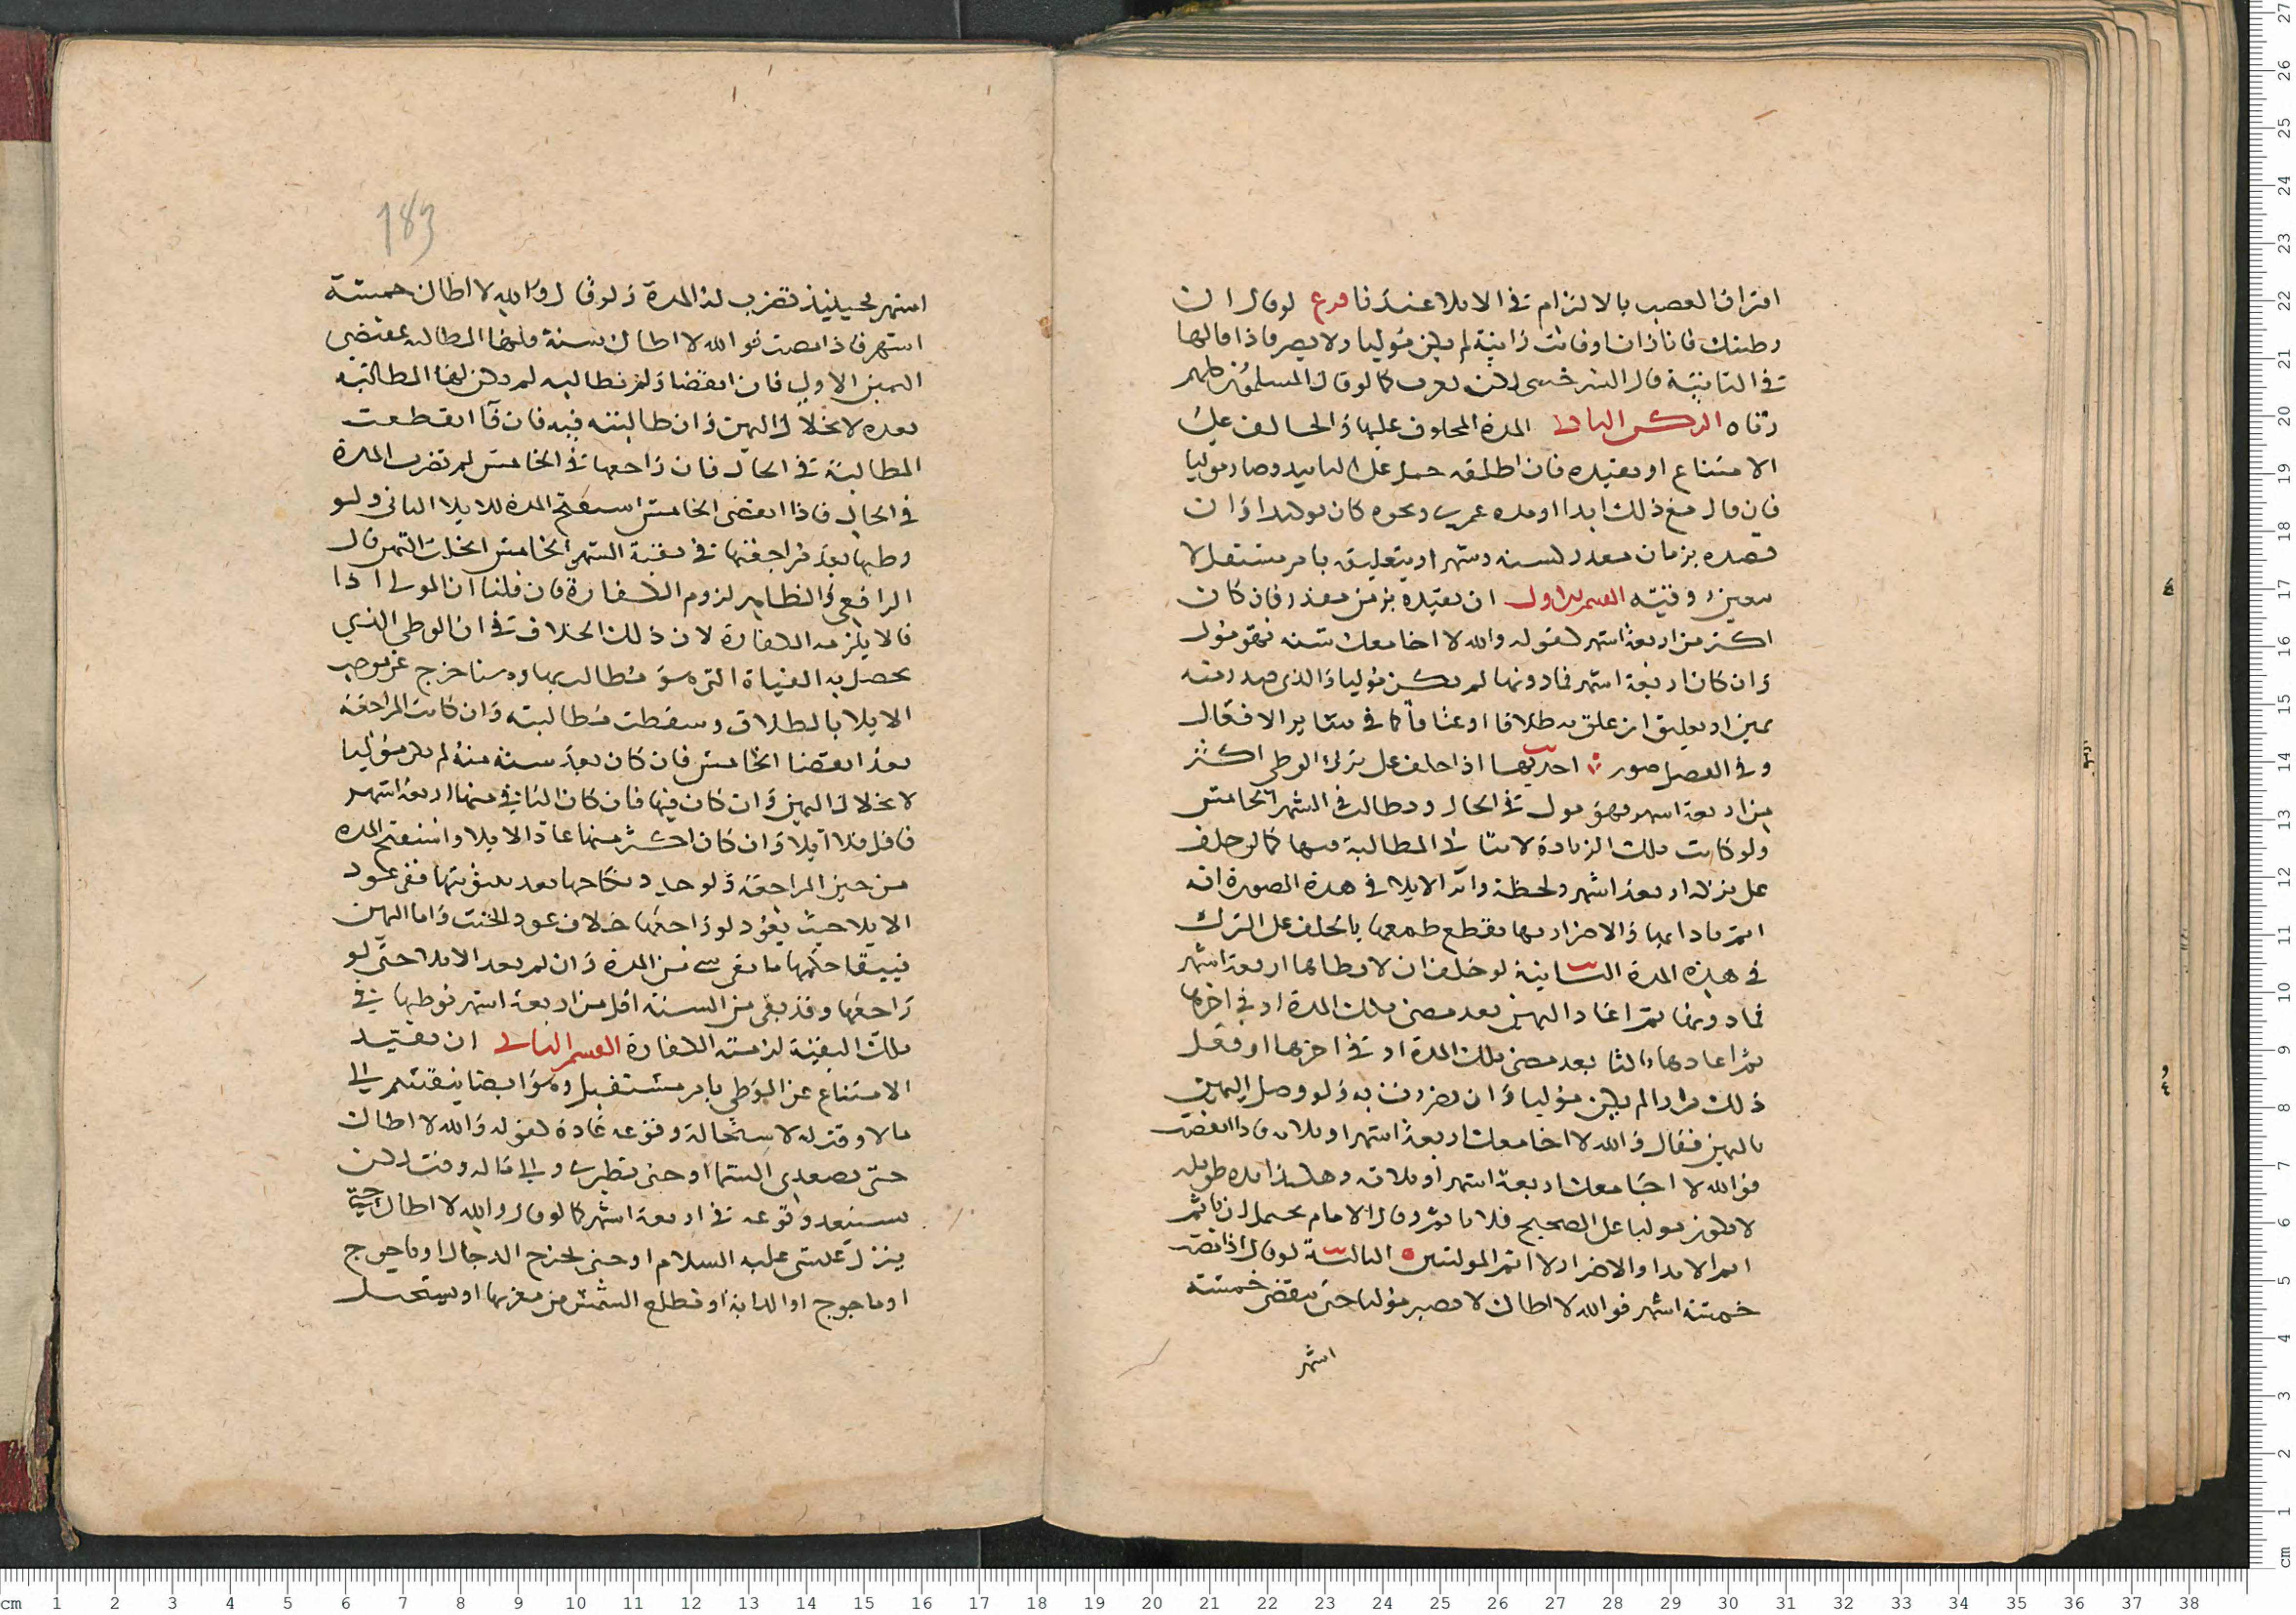 اقتران الغصب بالالتزام في الايلا عندنا فرع لو قال ان
وطيتك فانا زان او فانت زانية لم يكن موليا ولا يصير قاذفا لها
في الثانية قال السرخسي لكن يعزر كما لو قال المسلمون كلهم
زناه الركن الثاني المدة المحلوف عليها والحالف على
الامتناع او يقيده فان اطلقه حمل على التابيد وصار موليا
فان قال مع ذلك ابدا او مده عمري ونحوه كان توكيدا وان
قيده بزمان مقدر كسنه وشهر او بتعليق بامر مستقبل لا
يتعين وقته القسم الاول ان يقيده بزمن مقدر فان كان
اكثر من اربعة اشهر كقوله والله لا اجامعك سنه فهو مول
وان كان اربعة اشهر فما دونها لم يكن موليا والذي صدر منه
يمين او تعليق ان علق به طلاقا او عتاقا كما في ساير الافعال
وفي الفصل صور احديها اذا حلف على ترك الوطي اكثر
من اربعة اشهر فهو مول في الحال ويطالب في الشهر الخامس
ولو كانت تلك الزيادة لا تتاتى المطالبة فيها كما لو حلف
على تركه اربعة اشهر ولحظة واثر الايلا في هذه الصورة انه
اثم باذايها والاضرار بها بقطع طمعها بالحلف على الترك
في هذه المدة الثانية لو حلف ان لا يطاها اربعة اشهر
فما دونها ثم اعاد اليمين بعد مضي تلك المدة او في اخرها
ثم اعادها ثالثا بعد مضي تلك المدة او في اخرها او فعل
ذلك مرارا لم يكن موليا وان تضررت به ولو وصل اليمين
باليمين فقال والله لا اجامعك اربعة اشهر او ثلاثه فاذا انقضت
فوالله لا اجامعك اربعة اشهر او ثلاثه وهكذا مده طويله
لا يكون موليا على الصحيح فلا ياثم وقال الامام يحتمل ان ياثم
اثم الايذا والاضرار لا اثم المولين الثالثة لو قال اذا مضت
خمسة اشهر فوالله لا اطاك لا يصير موليا حتى تنقضي خمسة
اشهر
183
اشهر فحينيذ تضرب له المدة ولو قال والله لا اطاك خمسة
اشهر فاذا مضت فوالله لا اطاك سنة فلها المطالبه بمقتضى
اليمين الاولى فان انقضا ولم تطالبه لم يكن لها المطالبه
بعده لانحلال اليمين وان طالبته فيه فان فا انقطعت
المطالبة في الحال فان راجعها في الخامس لم تضرب المدة
في الحال فاذا انقضى الخامس استفتح المدة للايلا الثاني ولو
وطيها بعد مراجعتها في بقية الشهر الخامس انحلت اليمين قال
الرافعي والظاهر لزوم الكفارة فان قلنا ان المولى اذا
فا لا يلزمه الكفارة لان ذلك الخلاف في ان الوطي الذي
يحصل به الفياة التي هو مطالب بها وهنا خرج عن موجب
الايلا بالطلاق وسقطت مطالبته وان كانت المراجعة
بعد انقضا الخامس فان كان بعد سنة منه لم يكن موليا
لانحلال اليمين وان كان فيها فان كان الباقي منها اربعة اشهر
فاقل فلا ايلا وان كان اكثر منها عاد الايلا واستفتح المده
من حين المراجعة ولو جدد نكاحها بعد بينونتها ففي عود
الايلا حيث يعود لو راجعها خلاف عود الحنث واما اليمين
فيبقا حكمها ما بقي شي من المدة وان لم يعد الايلا حتى لو
راجعها وقد بقي من السنة اقل من اربعة اشهر فوطيها في
تلك البقية لزمته الكفارة القسم الثاني ان يقيد
الامتناع عن الوطي بامر مستقبل وهو ايضا ينقسم الى
ما لا وقت له لاستحالة وقوعه عادة كقوله والله لا اطاك
حتى تصعدي السما او حتى تطيري والى ما له وقت لكن
يستبعد وقوعه في اربعة اشهر كما لو قال والله لا اطاك حتى
ينزل عيسى عليه السلام او حتى يخرج الدجال او ياجوج
او ماجوج او الدابة او تطلع الشمس من مغربها او يستحيل